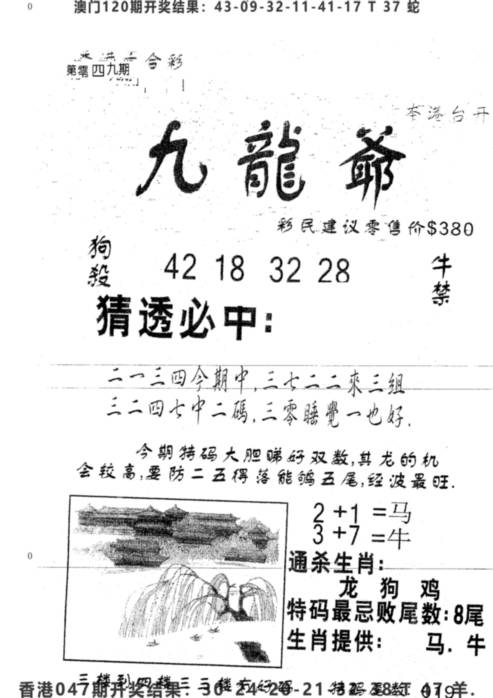 澳门120期开奖结果：43-09-32-11-41-17 T 37 蛇
四九期
本港台开
九龍爺
彩民建议零售价$380
狗殺 42 18 32 28 牛禁
猜透必中：
二一三四今期中,三七二二來三組
三二四七中二碼,三零睡覺一也好.
今期特码大胆睇好双数,其龙的机
会较高,要防二五得落能够五尾,经波最旺.
2+1=马
3+7=牛
通杀生肖：
龙 狗 鸡
特码最忌败尾数：8尾
生肖提供： 马. 牛
香港047期开奖结果：